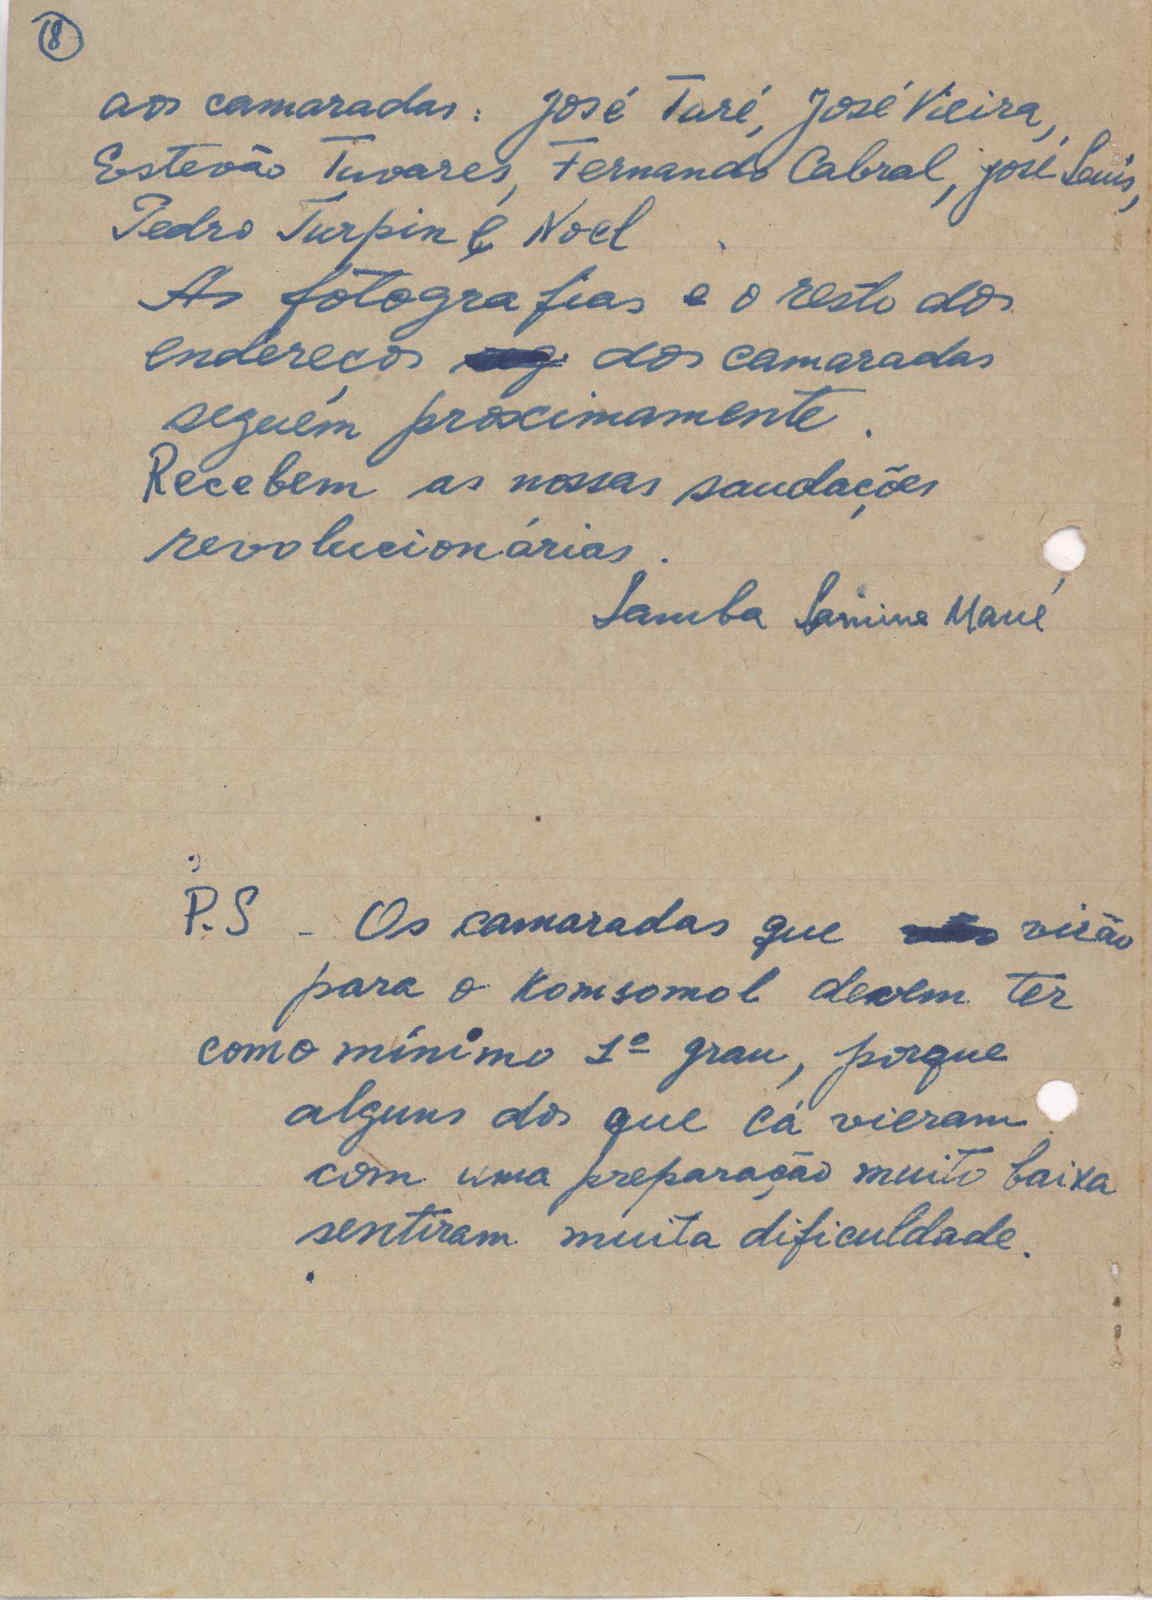 18
aos camaradas: José Turé, José Vieira,
Estevão Tavares, Fernando Cabral, José Luís,
Pedro Turpin e Noel
As fotografias e o resto dos
endereços dos camaradas
seguém proximamente.
Recebem as nossas saudações
revolucionárias.
Samba Lamine Mané
P.S - Os camaradas que virão
para o Komsomol devem ter
como mínimo 1º grau, porque
alguns dos que cá vieram
com uma preparação muito baixa
sentiram muita dificuldade.